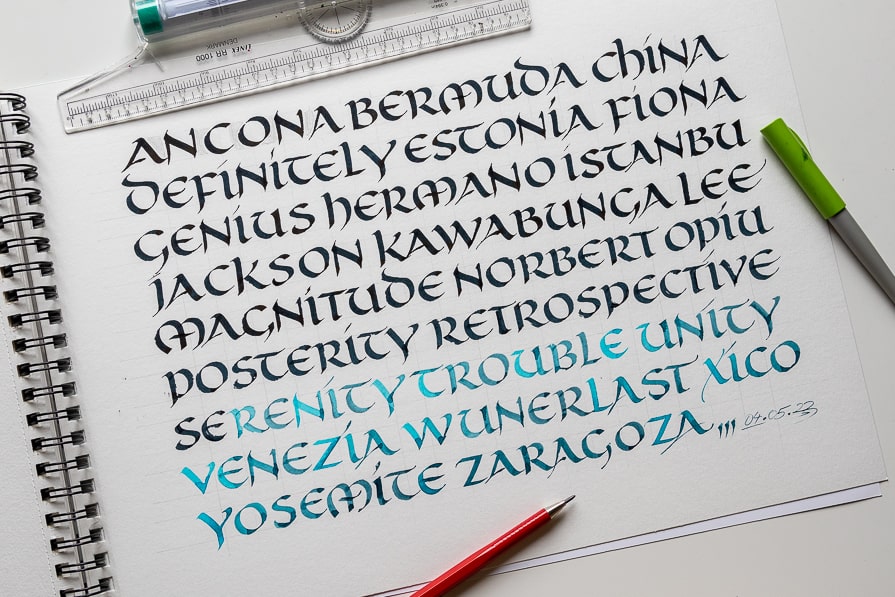 LINEX RR 1000 DENMARK
ANCONA BERMUDA CHINA
DEFINITELY ESTONIA FIONA
GENIUS HERMANO ISTANBU
JACKSON KAWABUNGA LEE
MAGNITUDE NORBERT OPIU
POSTERITY RETROSPECTIVE
SERENITY TROUBLE UNITY
VENEZIA WUNERLAST XICO
YOSEMITE ZARAGOZA ,,, 04.05.23